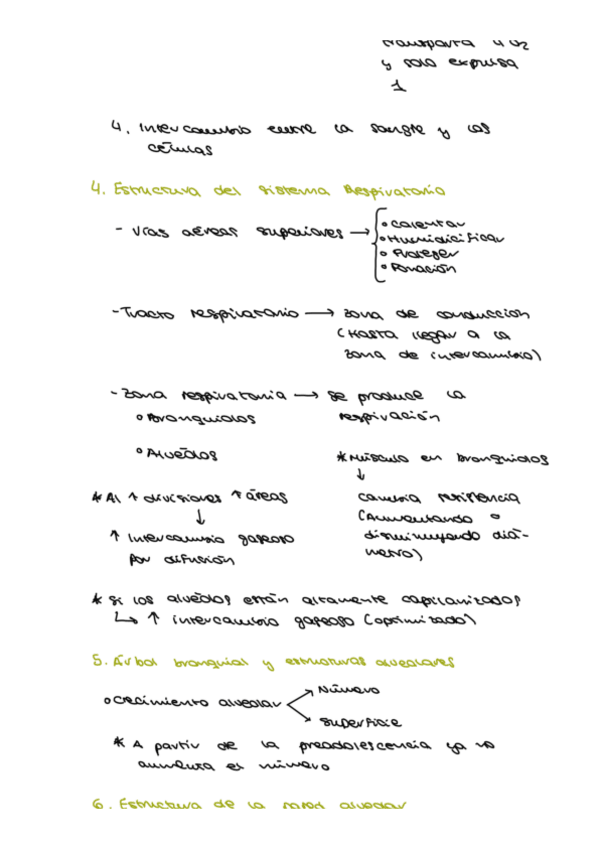 transporta 4 O2
y solo expulsa
1
4. Intercambio entre la sangre y las
células
4. Estructura del Sistema Respiratorio
- Vías aéreas superiores →
• Calentar
• Humidicificar
• Proteger
• Fonación
- Tracto respiratorio → Zona de conducción
(Hasta llegar a la
zona de intercambio)
- Zona respiratoria → se produce la
respiración
• Bronquiolos
• Alvéolos
* Músculo en bronquiolos
↓
cambia resistencia
(Aumentando o
disminuyendo diá-
metro)
* Al ↑ divisiones ↑ áreas
↓
↑ Intercambio gaseoso
por difusión
* Si los alvéolos están altamente capilarizados
↳ ↑ intercambio gaseoso (optimizado)
5. Árbol bronquial y estructuras alveolares
• Crecimiento alveolar
Número
Superficie
* A partir de la preadolescencia ya no
aumenta el número
6. Estructura de la pared alveolar